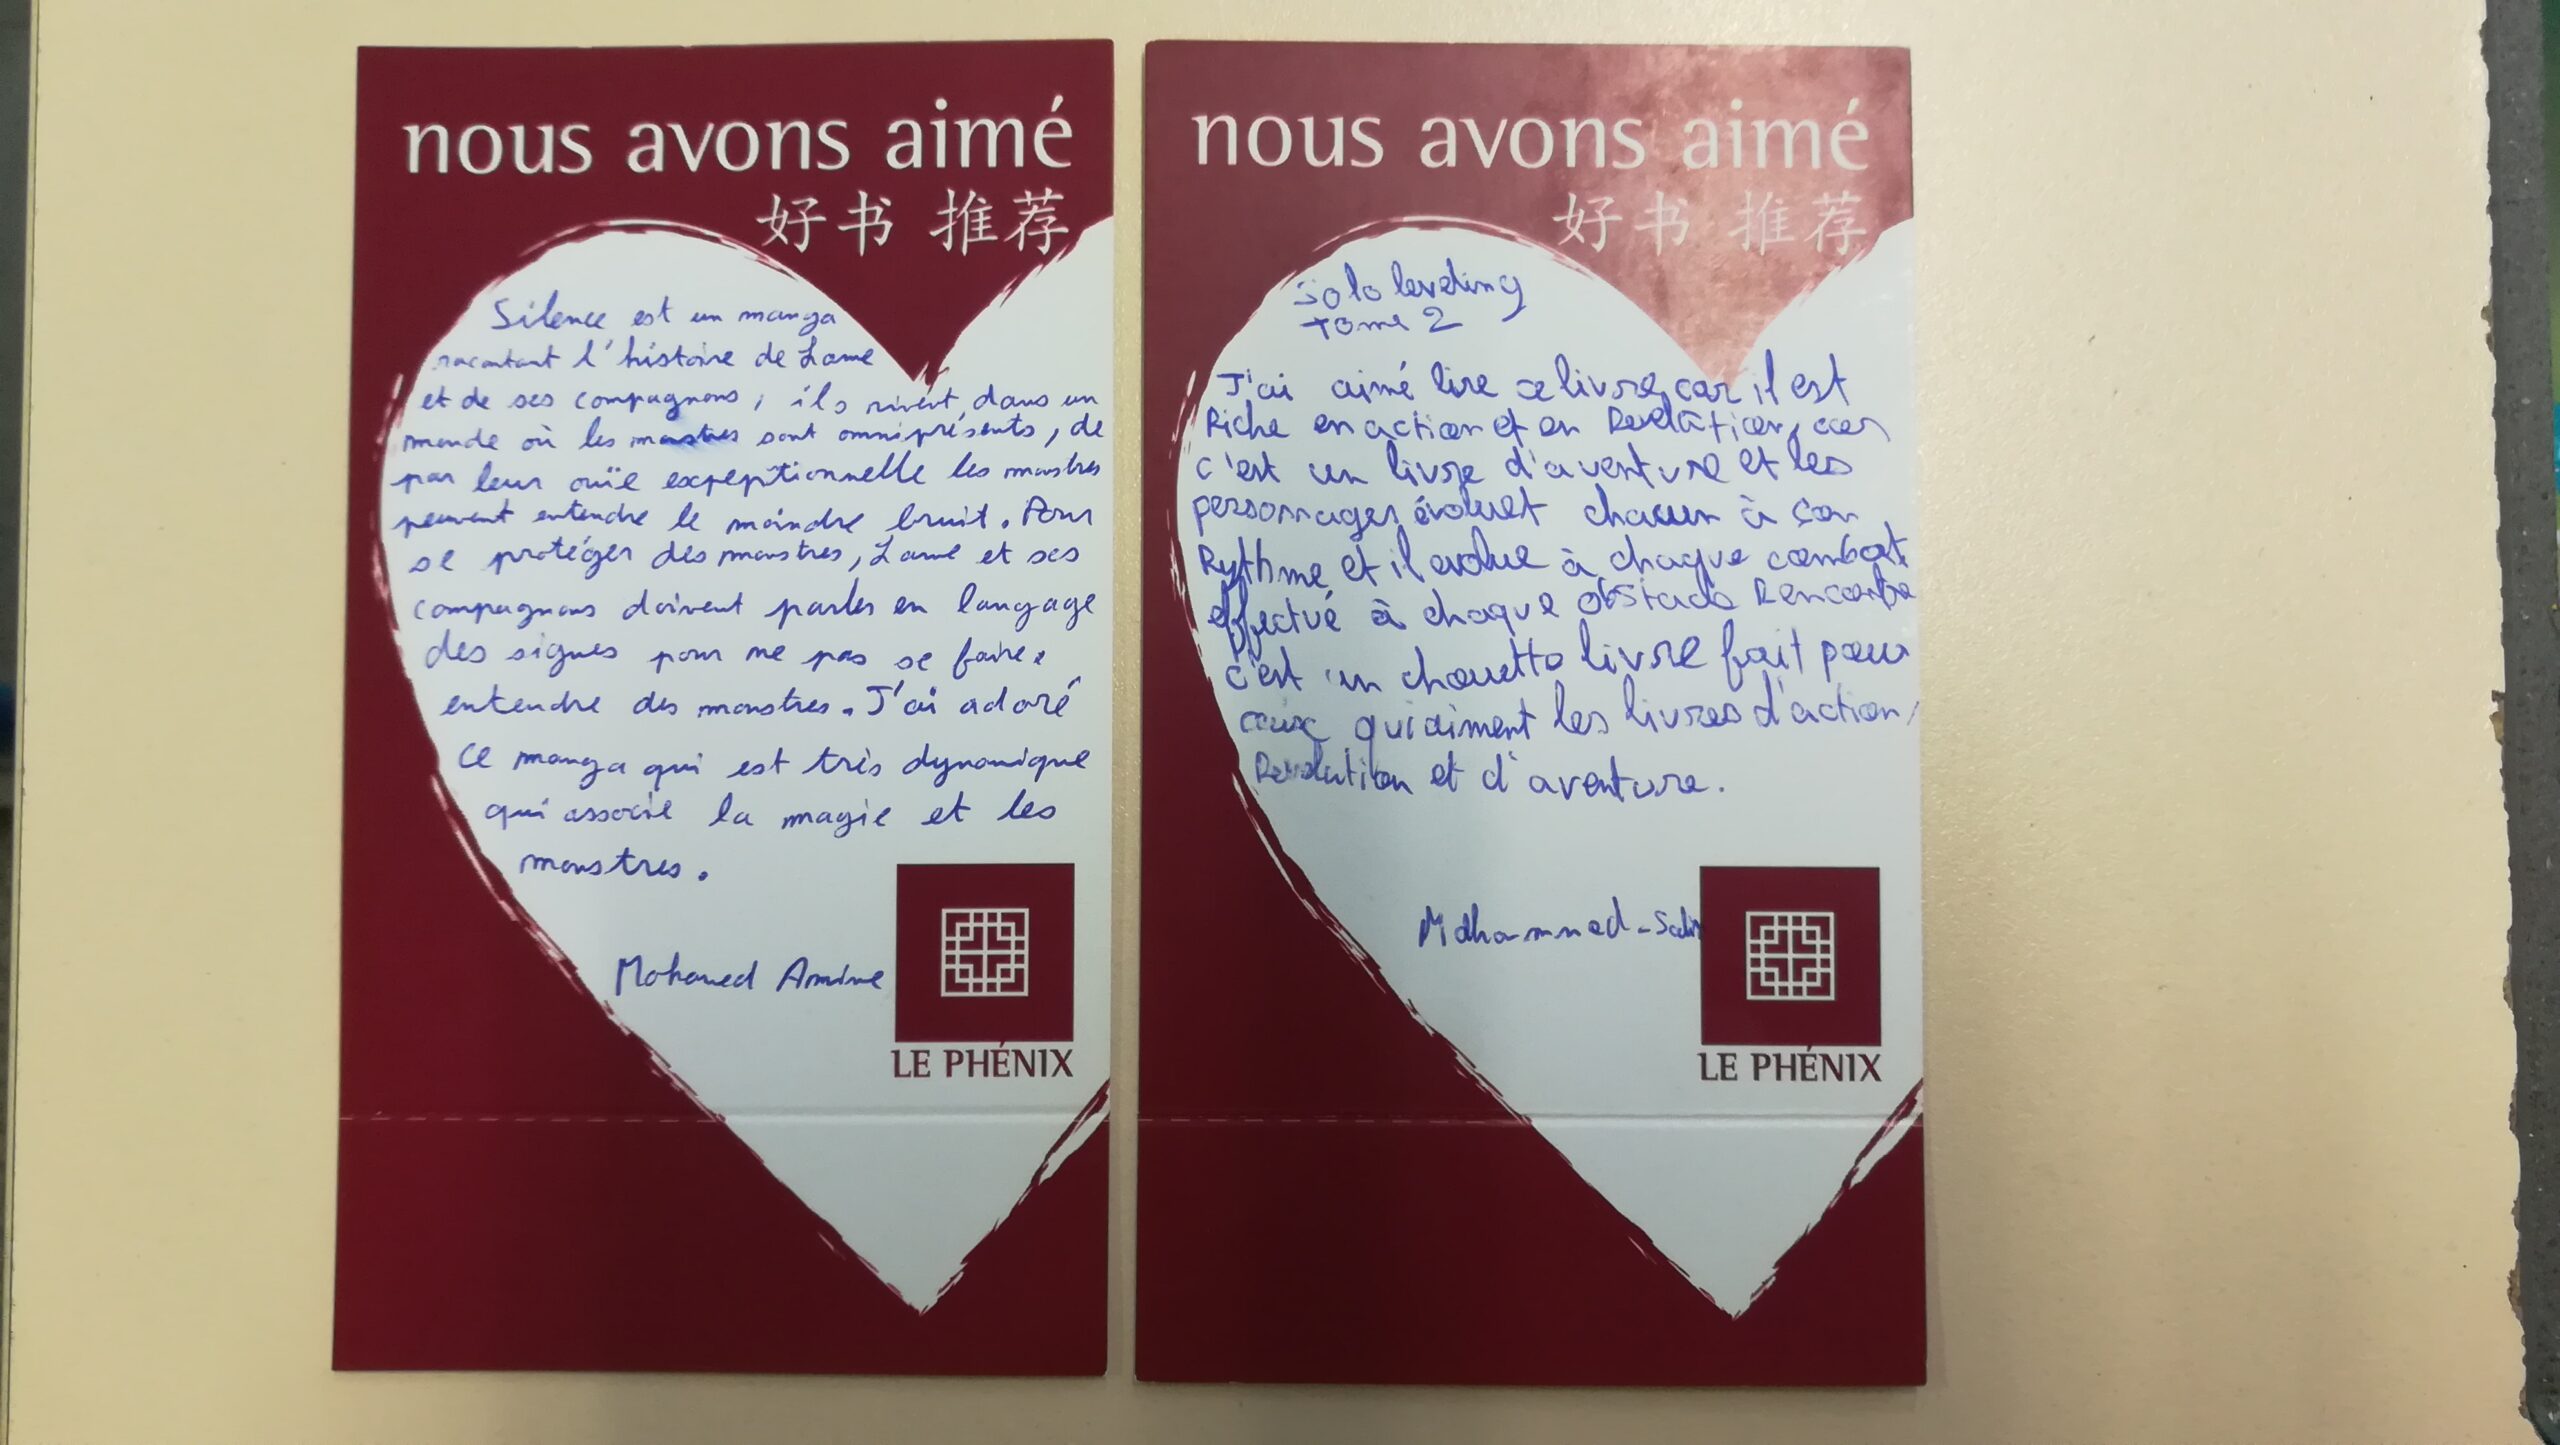 nous avons aimé
好书 推荐
Silence est un manga
racontant l'histoire de Lame
et de ses compagnons, ils vivent dans un
monde où les monstres sont omniprésents, de
par leur ouïe expeptionnelle les monstres
peuvent entendre le moindre bruit. Pour
se protéger des monstres, Lame et ses
compagnons doivent parler en langage
des signes pour ne pas se faire
entendre des monstres. J'ai adoré
ce manga qui est très dynamique
qui associe la magie et les
monstres.
Mohamed Amine
LE PHÉNIX
nous avons aimé
好书 推荐
Solo leveling
Tome 2
J'ai aimé lire ce livre car il est
Riche en action et en Revelation, car
c'est un livre d'aventure et les
personnages évoluet chacun à son
Rythme et il evolue à chaque combat
effectué à chaque obstacle Rencontre
c'est un chouette livre fait pour
ceux qui aiment les livres d'action,
Revelation et d'aventure.
Mohammed-Salim
LE PHÉNIX